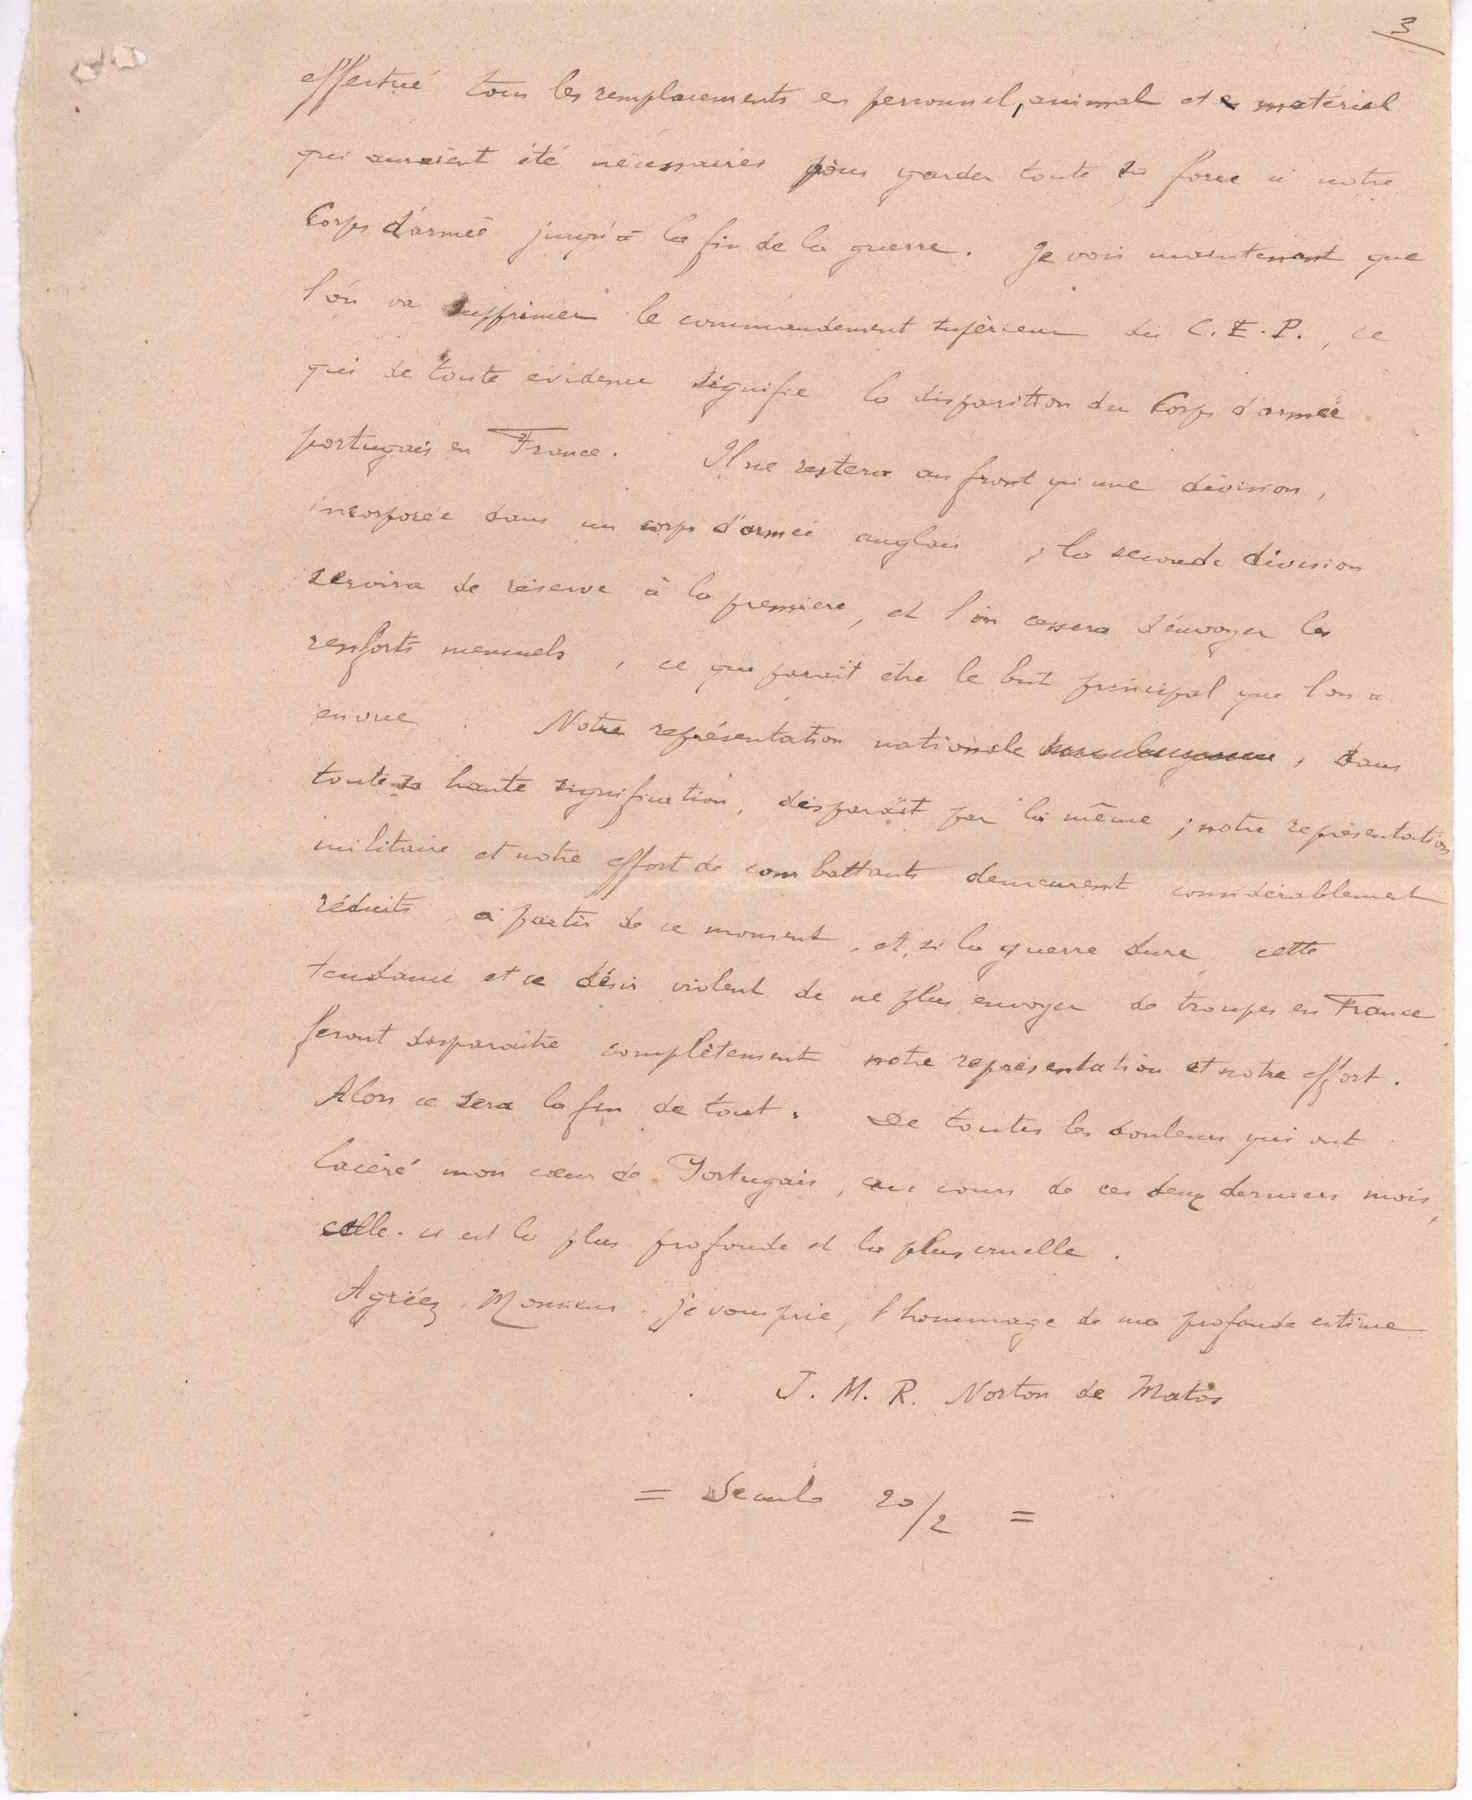 3
effectué tous les remplacements en personnel, animal et en matériel
qui auraient été nécessaires pour garder toute sa force à notre
Corps d'armée jusqu'à la fin de la guerre. Je vois maintenant que
l'on va supprimer le commandement supérieur du C.E.P., ce
qui de toute évidence signifie la disparition du Corps d'armée
portugais en France. Il ne restera au front qu'une division,
incorporée dans un corps d'armée anglais, la seconde division
servira de réserve à la première, et l'on cessera d'envoyer les
renforts mensuels, ce que parait être le but principal que l'on a
en vue. Notre représentation nationale, dans
toute sa haute signification, disparaît par là même; notre représentation
militaire et notre effort de combattants demeurent considérablement
réduits à partir de ce moment, et, si la guerre dure, cette
tendance et ce désir violent de ne plus envoyer de troupes en France
feront disparaitre complètement notre représentation et notre effort.
Alors ce sera la fin de tout. De toutes les douleurs qui ont
lacéré mon cœur de Portugais, au cours de ces deux derniers mois,
celle-ci est la plus profonde et la plus cruelle.
Agréez, Monsieur, je vous prie, l'hommage de ma profonde estime
J. M. R. Norton de Matos
= Seculo 20/2 =